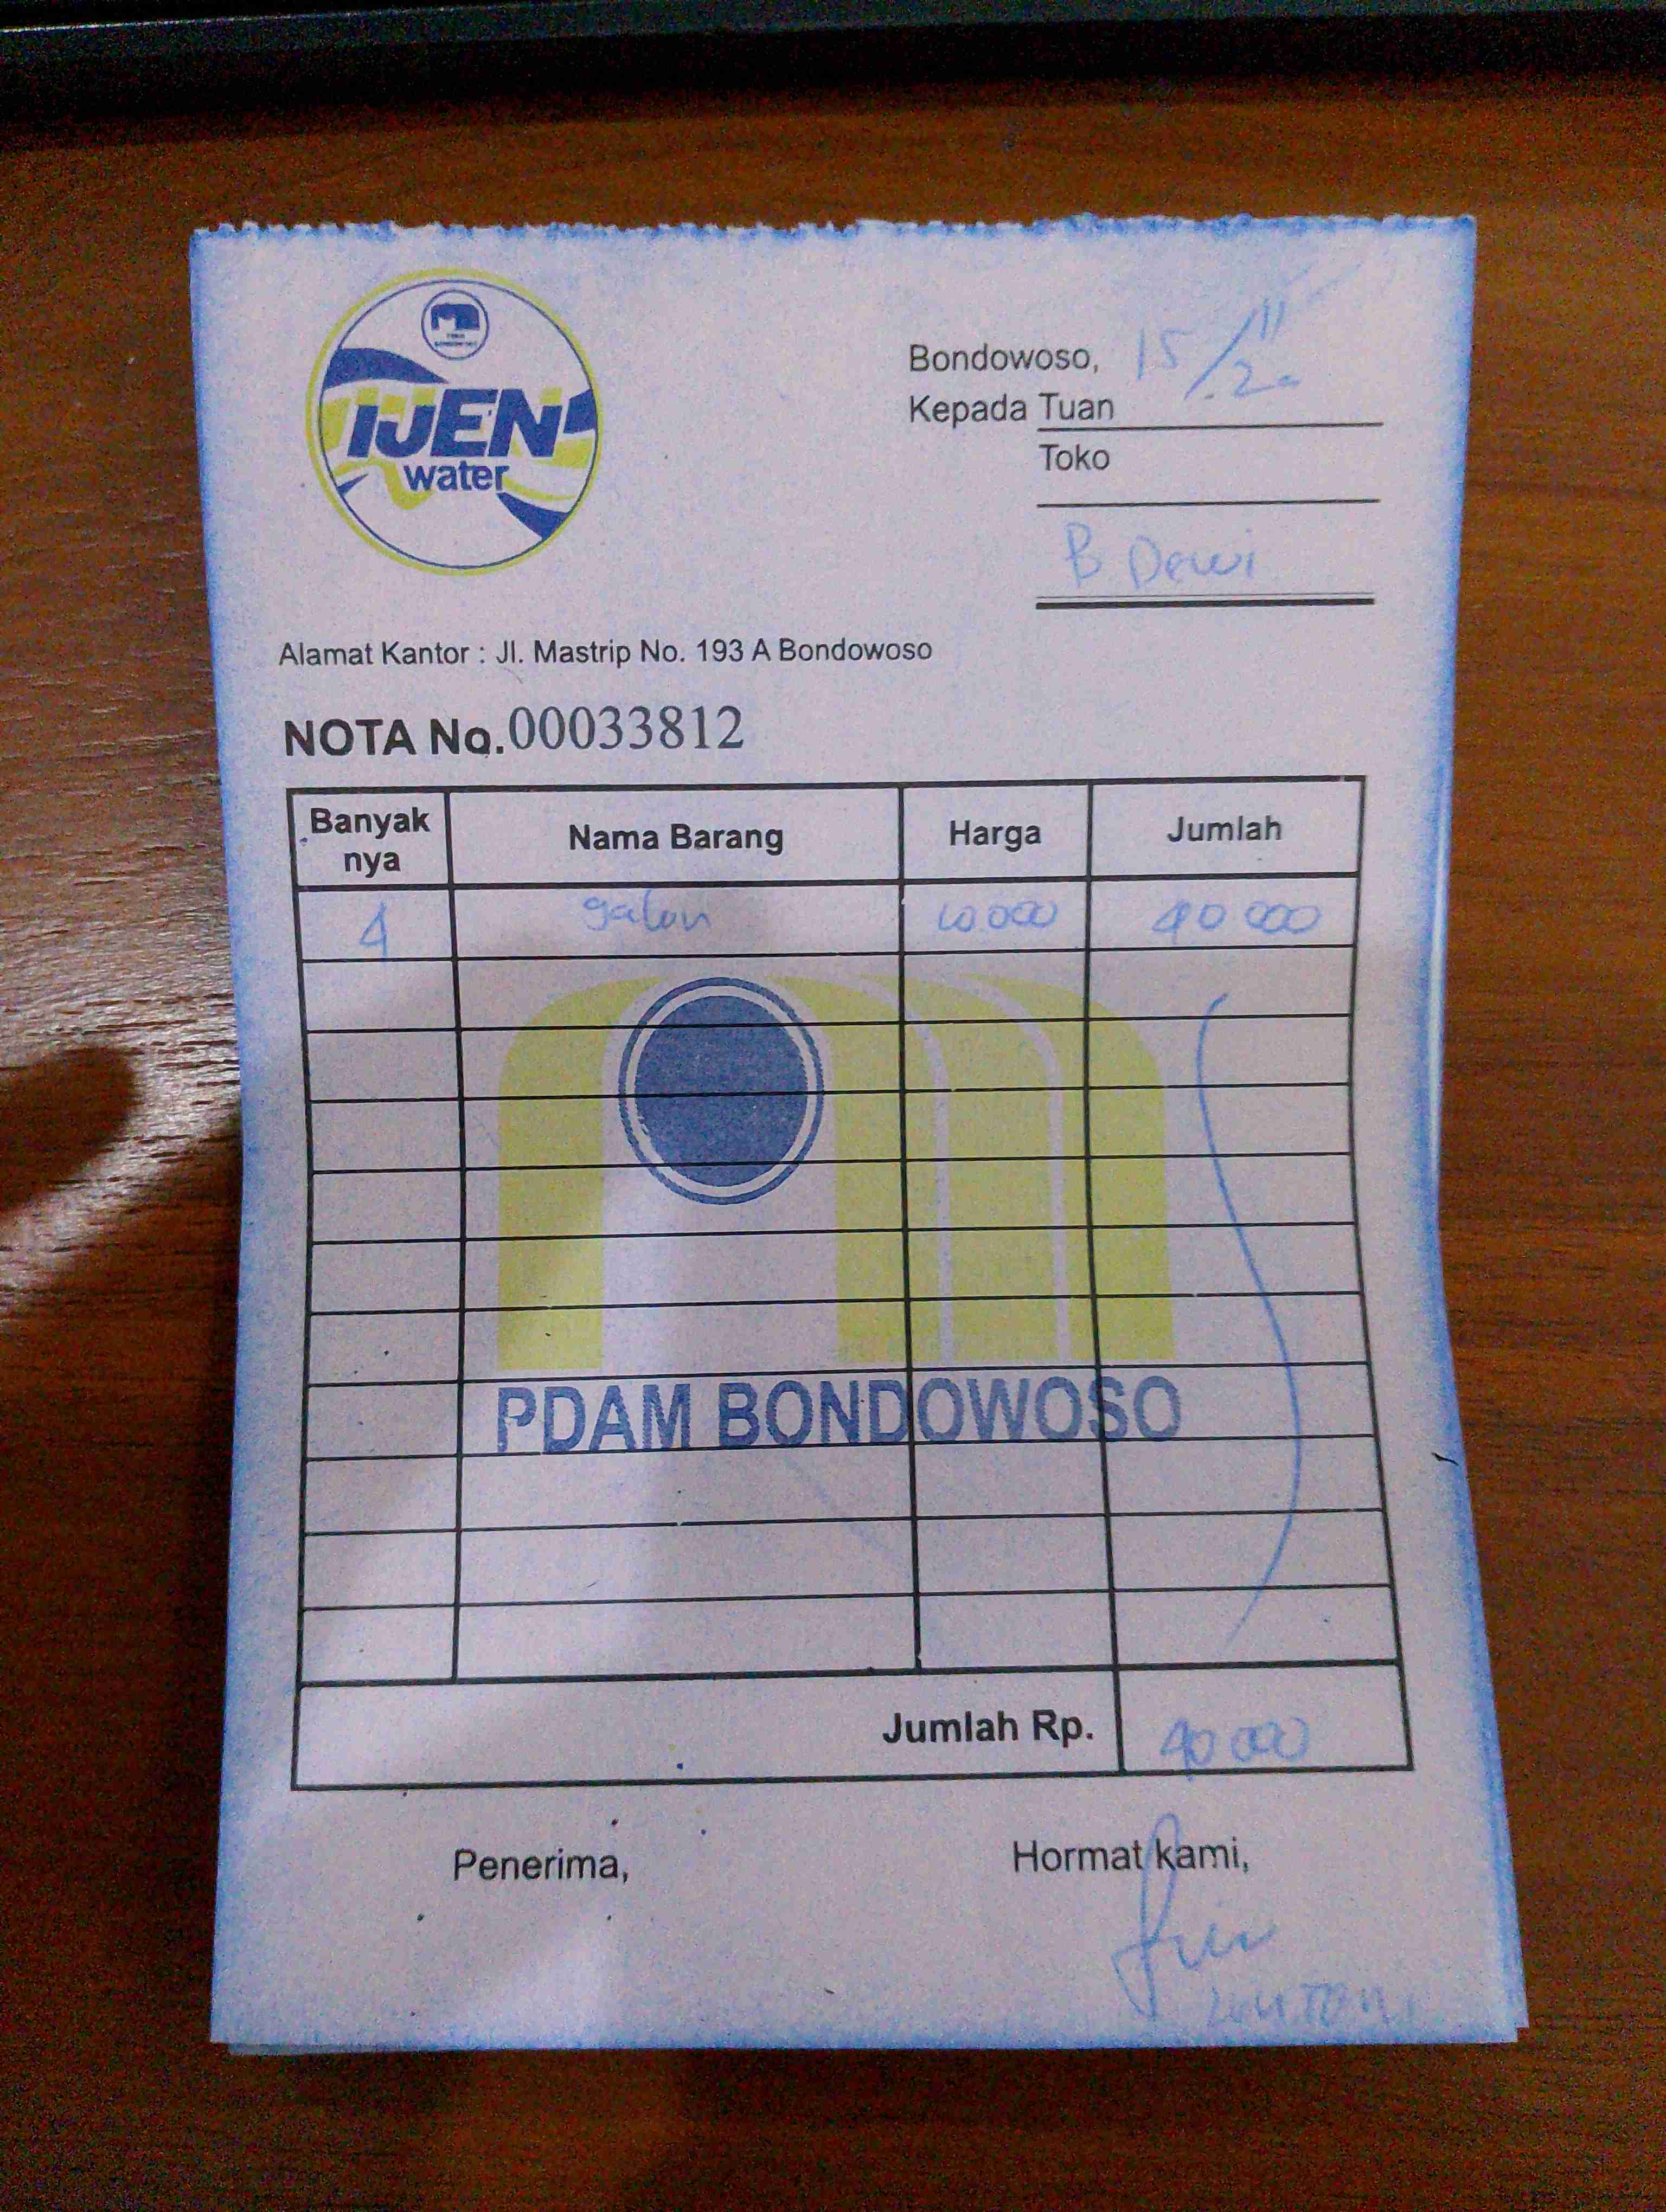 IJEN
water
Bondowoso, 15/11.20
Kepada Tuan
Toko
B Dewi
Alamat Kantor : Jl. Mastrip No. 193 A Bondowoso
NOTA No. 00033812
Banyak nya Nama Barang Harga Jumlah
4 galon 10.000 40 000
PDAM BONDOWOSO
Jumlah Rp. 40 000
Penerima, Hormat kami,